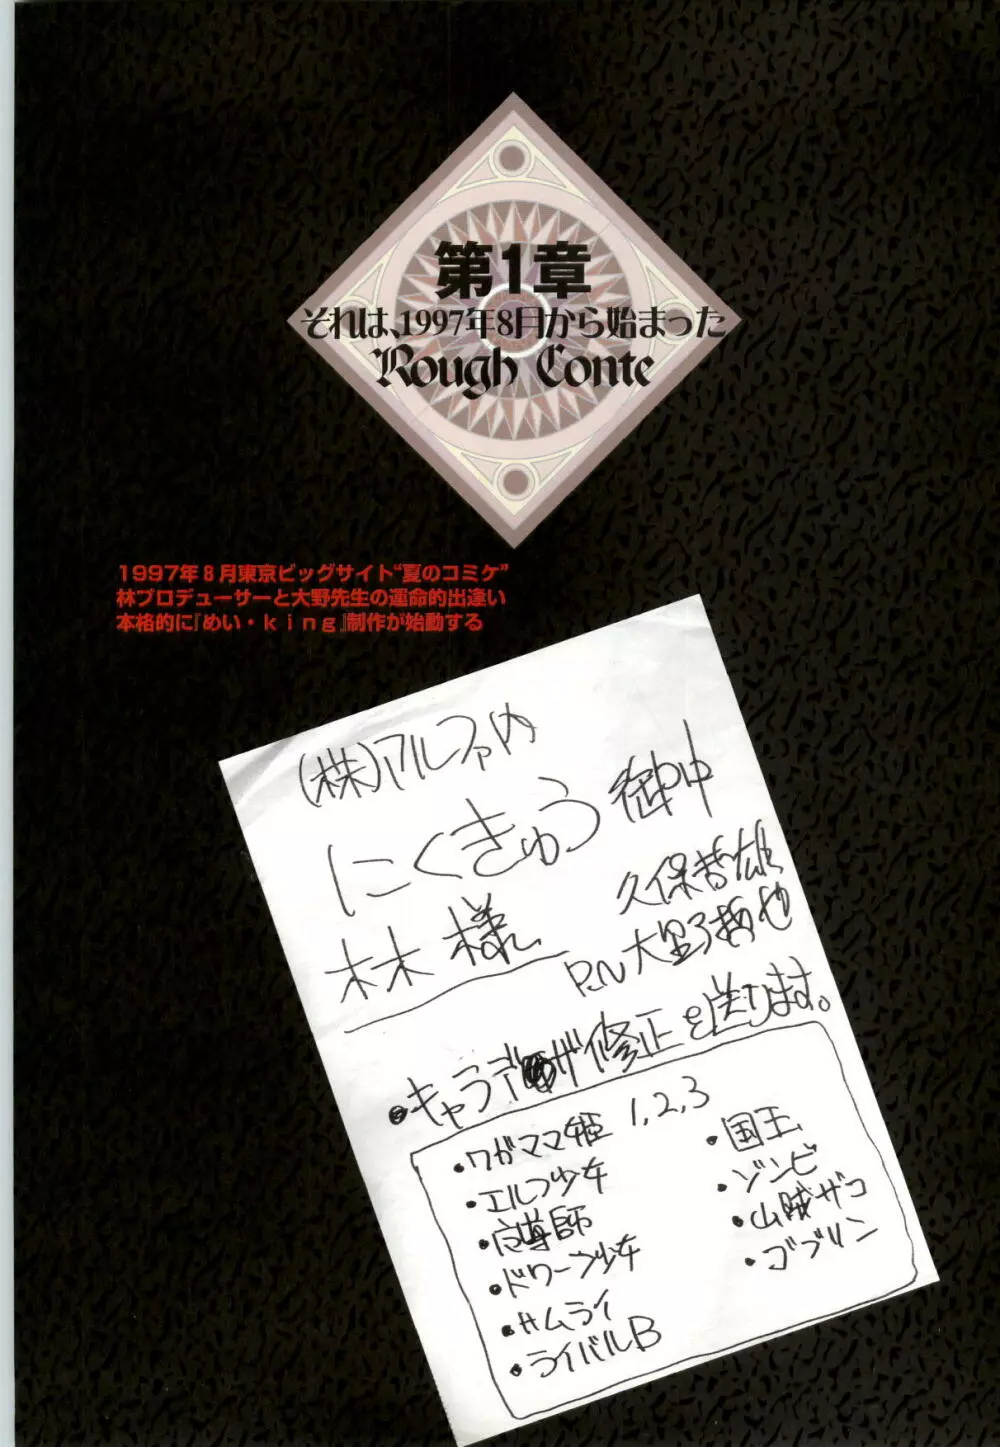 第1章
それは、1997年8月から始まった
Rough Conte
1997年8月東京ビッグサイト“夏のコミケ”
林プロデューサーと大野先生の運命的出逢い
本格的に『めい・king』制作が始動する
(株)アルファ内
にくきゅう御中
林様
久保哲雄
P.N大野哲也
・キャラデザ修正を送ります。
・ワガママ姫 1,2,3
・エルフ少女
・魔導師
・ドワーフ少女
・サムライ
・ライバルB
・国王
・ゾンビ
・山賊ザコ
・ゴブリン